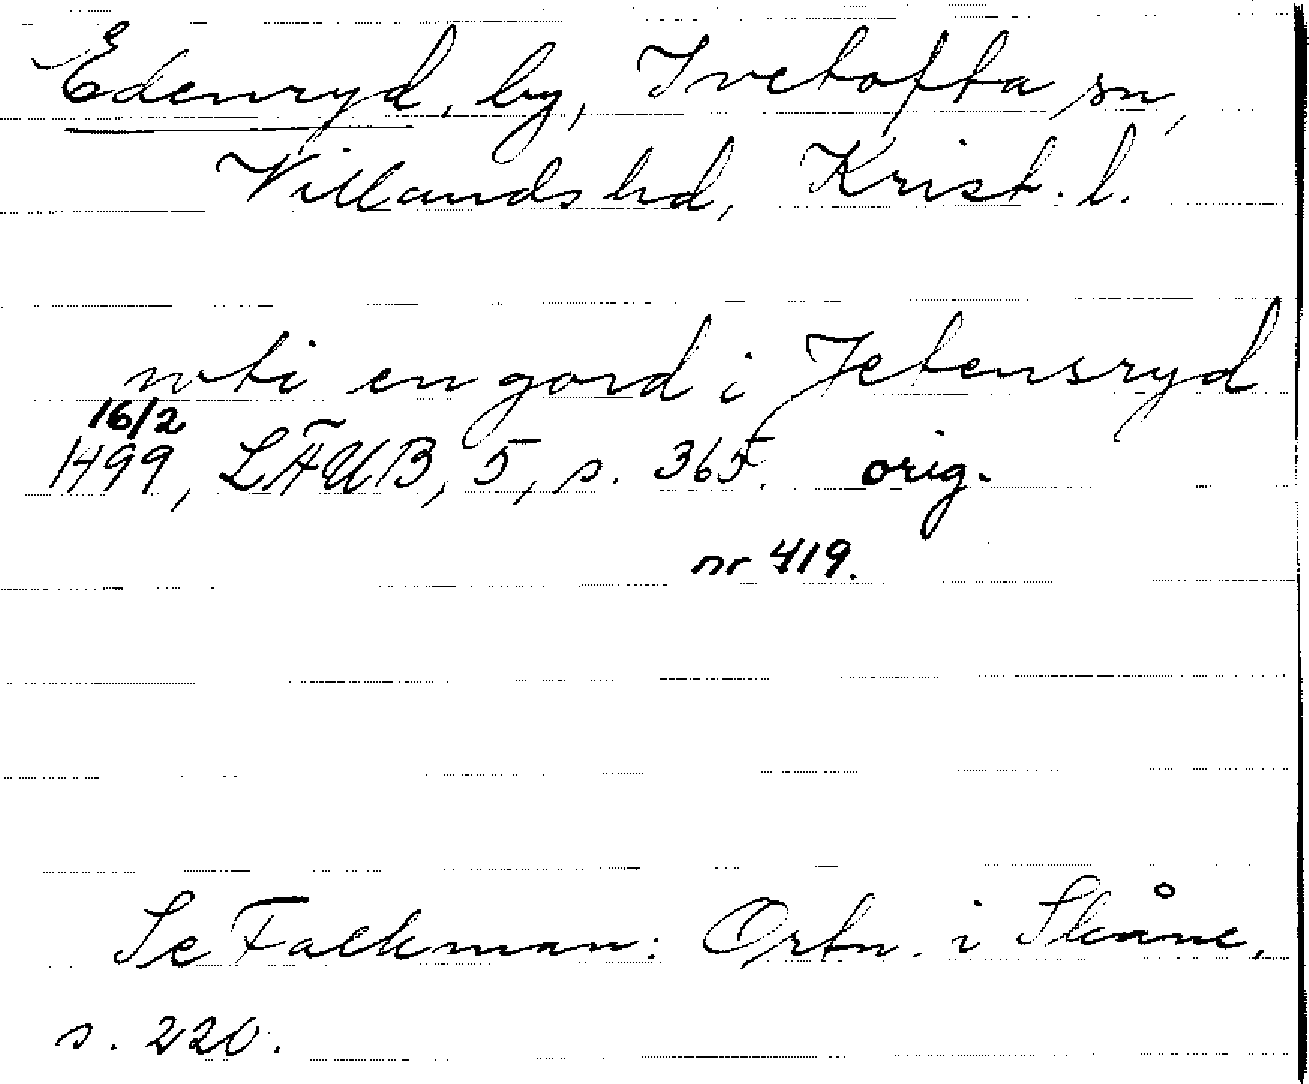 Edenryd, by, Ivetofta sn,
Villands hd, Krist. l.
noti en gord i Jetensryd
16/2
1499, LÄUB, 5, s. 365. orig.
nr 419.
Se Falkman: Ortn. i Skåne,
s. 220.